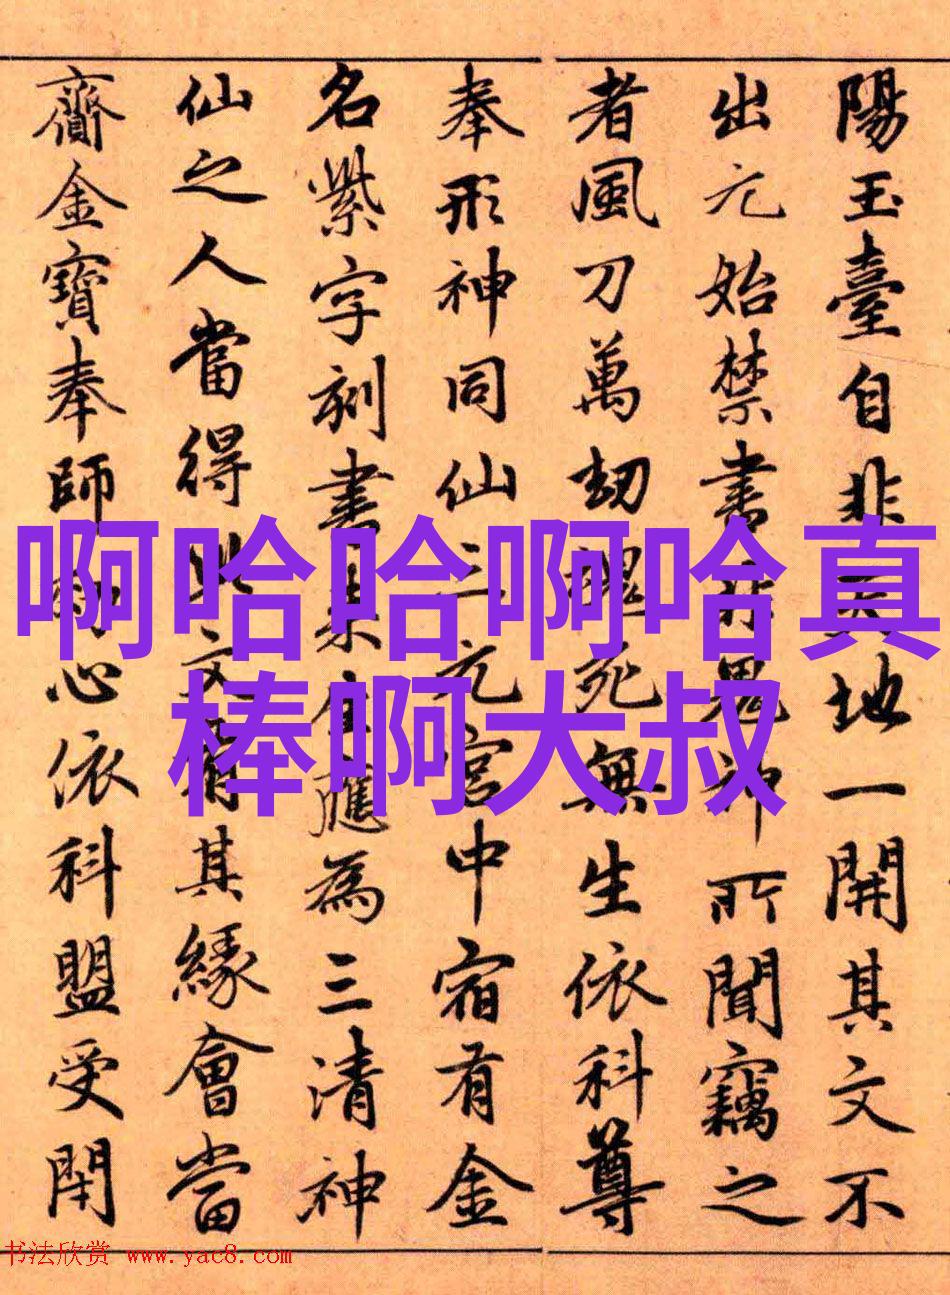 陽玉臺自非天地一開其文不
出元始禁書非鬼神所聞竊之
者風刀萬劫魂死無生依科尊
奉形神同仙三元宮中宿有金
名紫字刻書應為三清神
仙之人當得此文有其緣會當
齎金寶奉師心依科盟受閇
啊哈哈啊哈真
棒啊大叔
书法欣赏 www.yac8.com